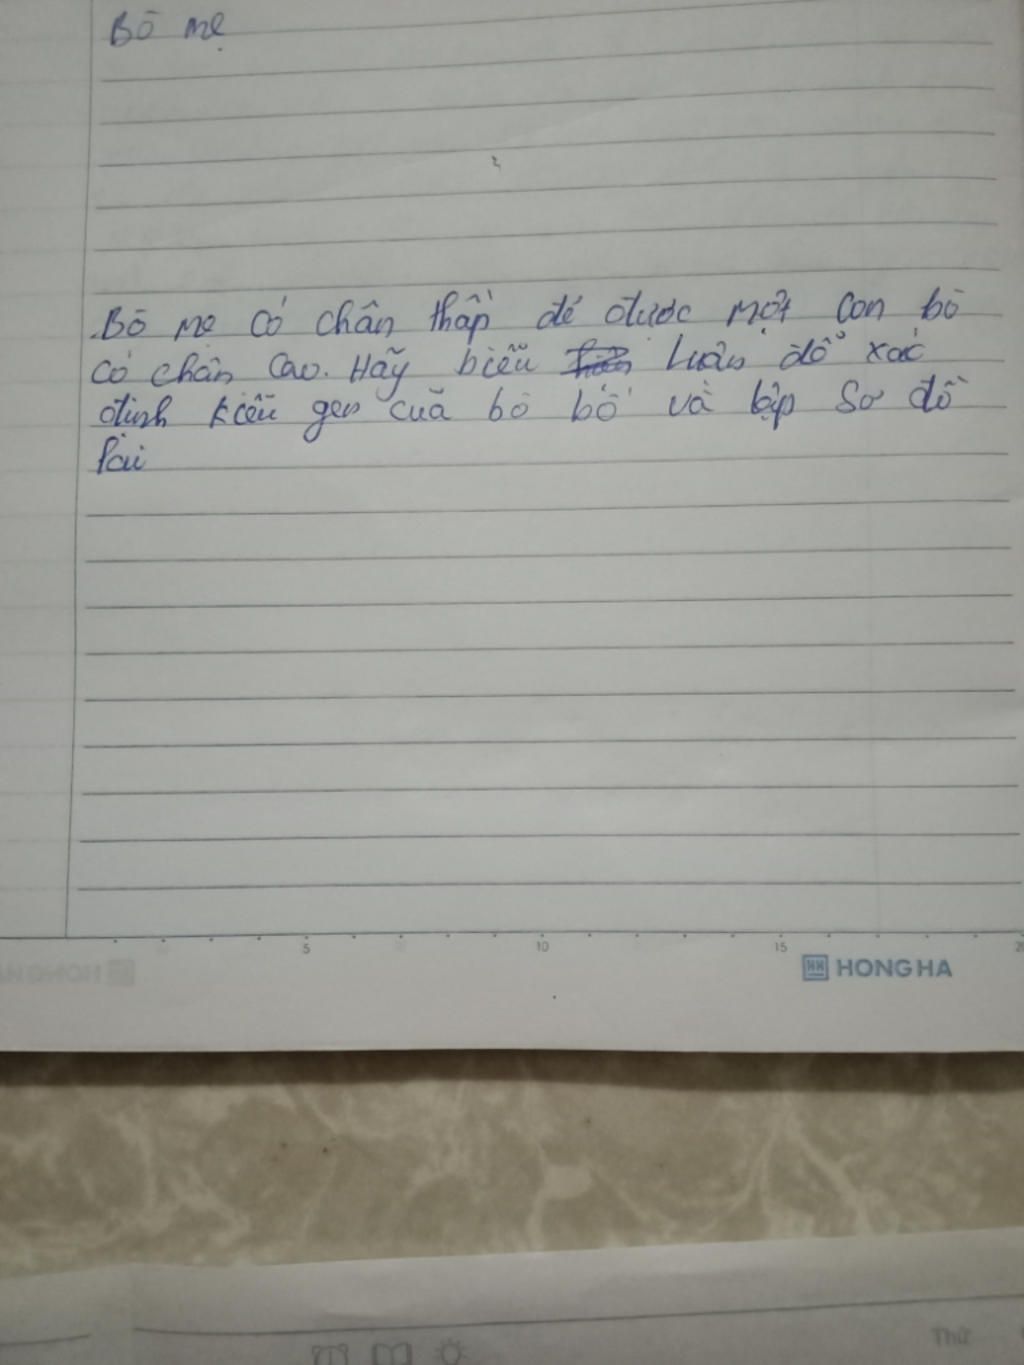 Bò mẹ
Bò mẹ có chân thấp đẻ được một con bò
có chân cao. Hãy biễu luận để xác
định kiễu gen cuã bò bố và lập sơ đồ
lai
5 10 15 2
HONG HA
Thứ